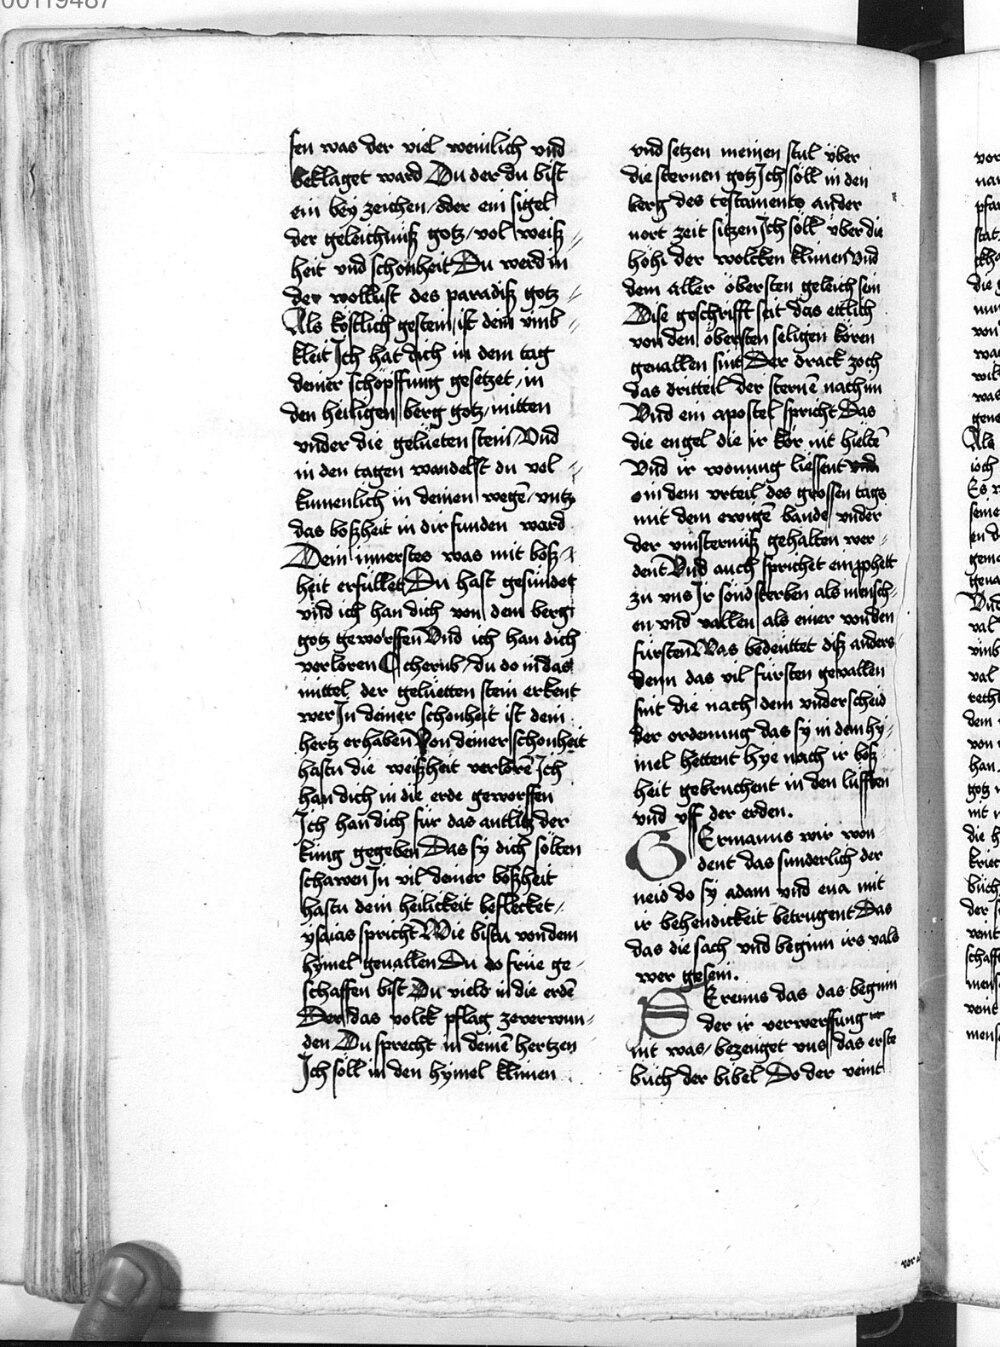 00119487
sen was der viel weinlich vnd
beklaget ward Du der du bist
ein bey zeichen / oder ein sigel
der geleichniß gotz / vol weiß //
heit vnd schonheit Du werd in
der wollust des paradiß gotz //
Als kostlich gestein ist dein vmb //
kleit Ich hat dich in dem tag
deiner schöpffung gesetzet / in
den heiligen berg gotz / mitten
vnder die gelüeten stein / Vnd
in den tagen wandelst du vol //
kumenlich in deinen wegē / vntz
das boßheit in dir funden ward
Dein innerstes was mit boß //
heit erfüllet Du hast gesündet
vnd ich han dich von dem berg
gotz geworffen Vnd ich han dich
verloren O cherub / du do in das
mittel der gelüetten stein erkent
wer In deiner schonheit ist dein
hertz erhaben Von deiner schonheit
hastu die weißheit verlorē Ich
han dich in die erde geworffen
Ich han dich für das antlitz der
küng gegeben Das sy dich sölten
schawen In vil deiner boßheit
hastu dein heilickeit beflecket /
ysaias spricht Wie bistu von dem
hymel geuallen Du do früe ge //
schaffen bist Du vield in die erdē
Der das volck pflag zeverwun //
den Du sprecht in deinē hertzen
Ich söll in den hymel klimen
vnd setzen meinen stul über
die sternen gotz Ich söll in den
berg des testamentz an der
nort zeit sitzen Ich söll über die
höhi der wolcken klimen Vnd
dem aller öbersten geleich sein
Dise geschrifft seit das ettlich
von den öbersten seligen kören
geuallen sint Der drack zoch
das dritteil der sternē nach im
Vnd ein apostel spricht Das
die engel die ir kor nit hieltē
Vnd ir wonung liessent
in dem vrteil des grossen tags
mit dem ewigē bande vnder
der vinsterniß gehalten wer //
dent Vnd auch sprichet ein pphett
zu vns Ir sönd sterben als mensch //
en vnd vallen als einer von den
fürsten Was bedeuttet diß anders
denn das vil fürsten geuallen
sint die nach dem vnderscheid
der ordenung das sy in dem hy //
mel hettent hye nach ir boß
heit gebruchent in den lüfften
vnd vff der erden.
GErmanus wir won
dent das sunderlich der
neid do sy adam vnd eua mit
ir behendickeit betrugent Das
das die sach vnd beginn irs vals
wer gesein.
SErenus das das beginn
der ir verwerffung
nit was / bezeuget vns das erste
buch der bibel Do der veint